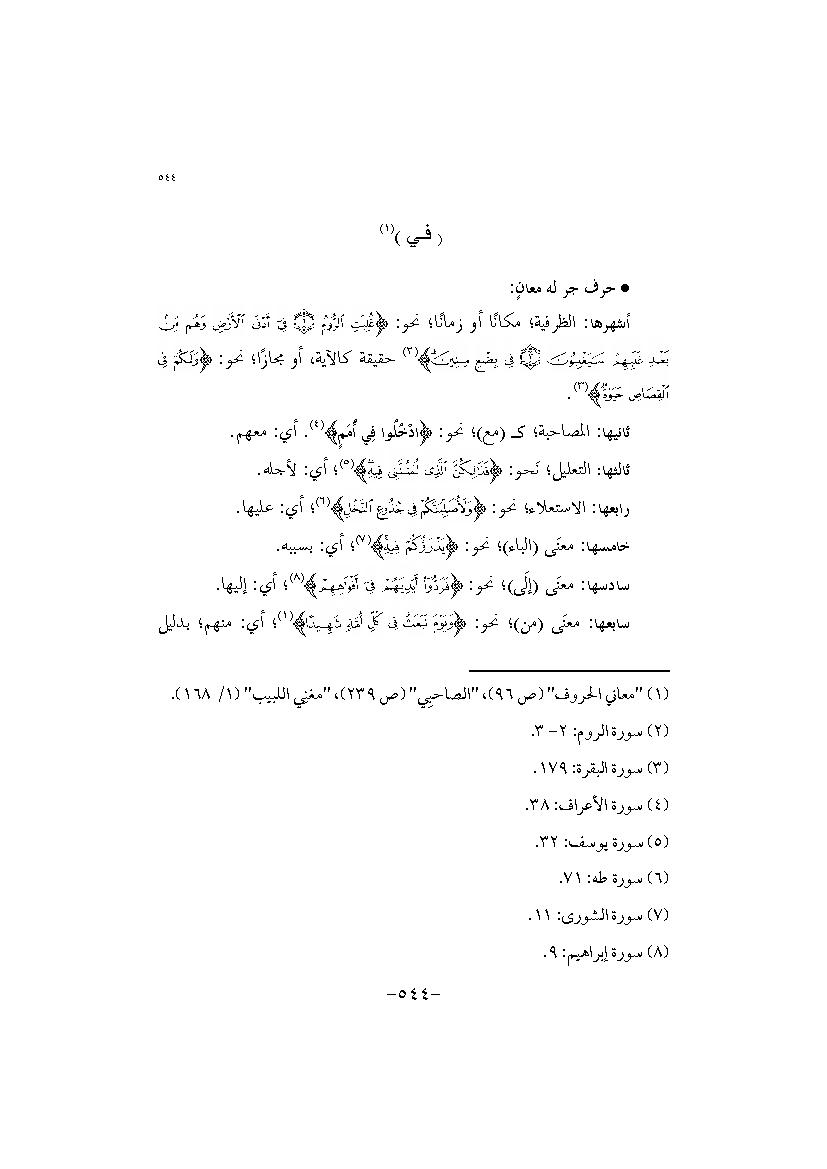 ٥٤٤
( فـي )(١)
● حرف جر له معانٍ:
أشهرها: الظرفية؛ مكانًا أو زمانًا؛ نحو: ﴿غُلِبَتِ ٱلرُّومُ ۝ فِىٓ أَدْنَى ٱلْأَرْضِ وَهُم مِّنۢ
بَعْدِ غَلَبِهِمْ سَيَغْلِبُونَ ۝ فِى بِضْعِ سِنِينَ﴾(٢) حقيقة كالآية، أو مجازًا؛ نحو: ﴿وَلَكُمْ فِى
ٱلْقِصَاصِ حَيَوٰةٌ﴾(٣).
ثانيها: المصاحبة؛ كـ (مع)؛ نحو: ﴿ادْخُلُوا فِي أُمَمٍ﴾(٤). أي: معهم.
ثالثها: التعليل؛ نَحو: ﴿فَذَٰلِكُنَّ ٱلَّذِى لُمْتُنَّنِى فِيهِ﴾(٥)؛ أي: لأجله.
رابعها: الاستعلاء؛ نحو: ﴿وَلَأُصَلِّبَنَّكُمْ فِى جُذُوعِ ٱلنَّخْلِ﴾(٦)؛ أي: عليها.
خامسها: معنَى (الباء)؛ نحو: ﴿يَذْرَؤُكُمْ فِيهِ﴾(٧)؛ أي: بسببه.
سادسها: معنَى (إلَى)؛ نحو: ﴿فَرَدُّوٓا۟ أَيْدِيَهُمْ فِىٓ أَفْوَٰهِهِمْ﴾(٨)؛ أي: إليها.
سابعها: معنَى (من)؛ نحو: ﴿وَيَوْمَ نَبْعَثُ فِى كُلِّ أُمَّةٍ شَهِيدًا﴾(١)؛ أي: منهم؛ بدليل
(١) "معاني الحروف" (ص ٩٦)، "الصاحبِي" (ص ٢٣٩)، "مغنِي اللبيب" (١/ ١٦٨).
(٢) سورة الروم: ٢- ٣.
(٣) سورة البقرة: ١٧٩.
(٤) سورة الأعراف: ٣٨.
(٥) سورة يوسف: ٣٢.
(٦) سورة طه: ٧١.
(٧) سورة الشورى: ١١.
(٨) سورة إبراهيم: ٩.
-٥٤٤-